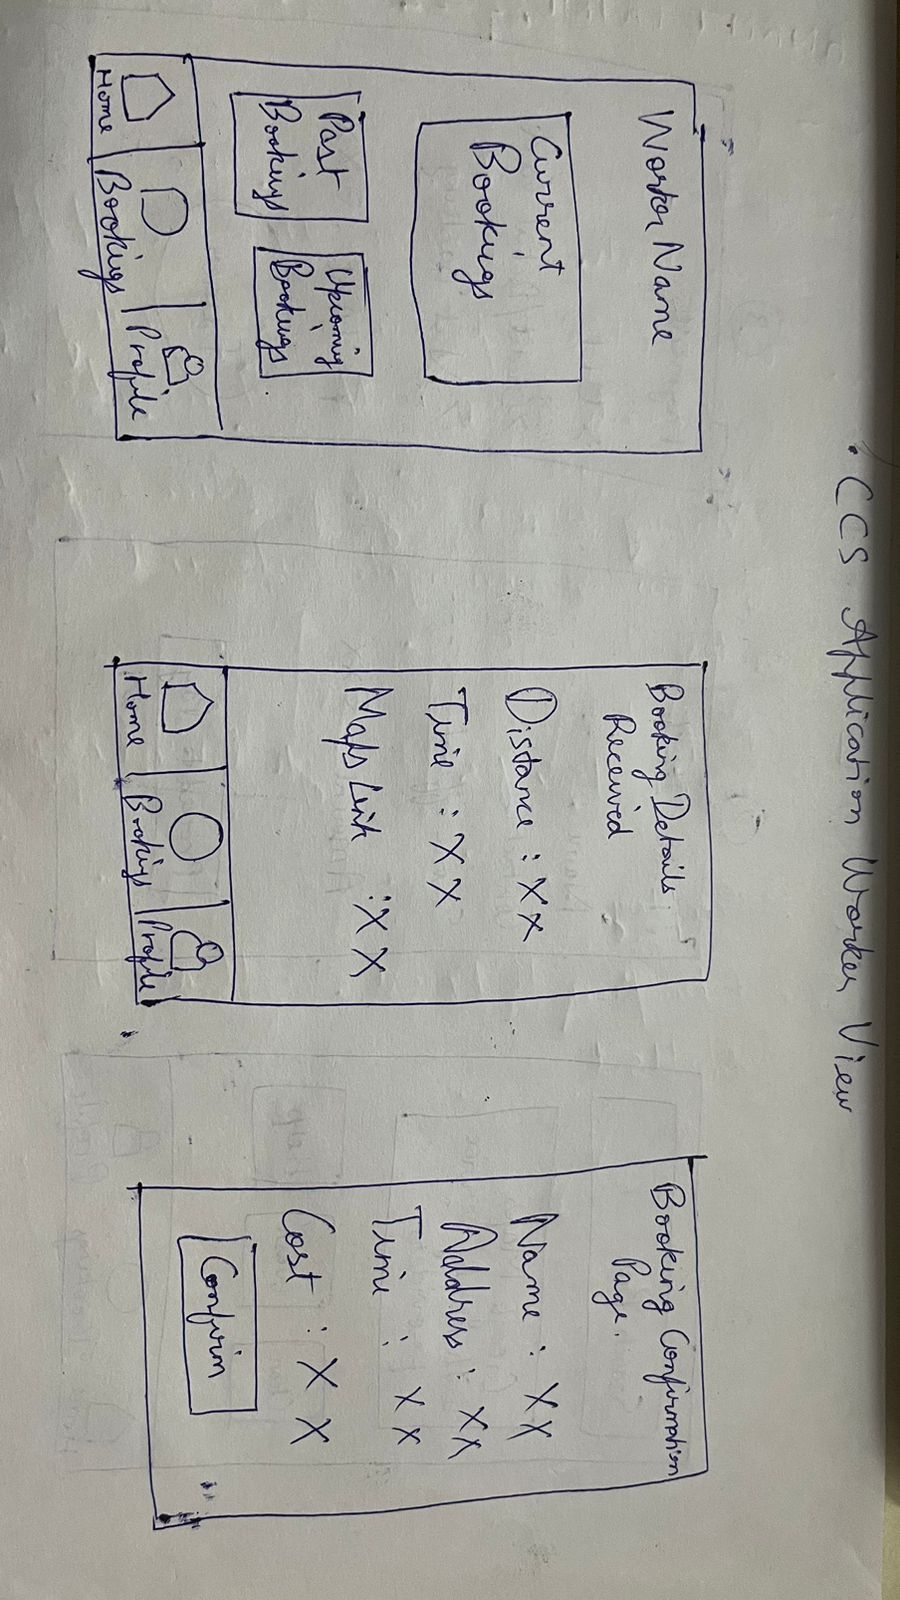 . CCS Application Worker View
Worker Name
Current
Bookings
Past
Bookings
Upcoming
Bookings
Home
Bookings
Profile
Booking Details
Received
Distance : XX
Time : XX
Maps Link : XX
Home
Bookings
Profile
Booking Confirmation
Page.
Name : XX
Address : XX
Time : XX
Cost : XX
Confirm